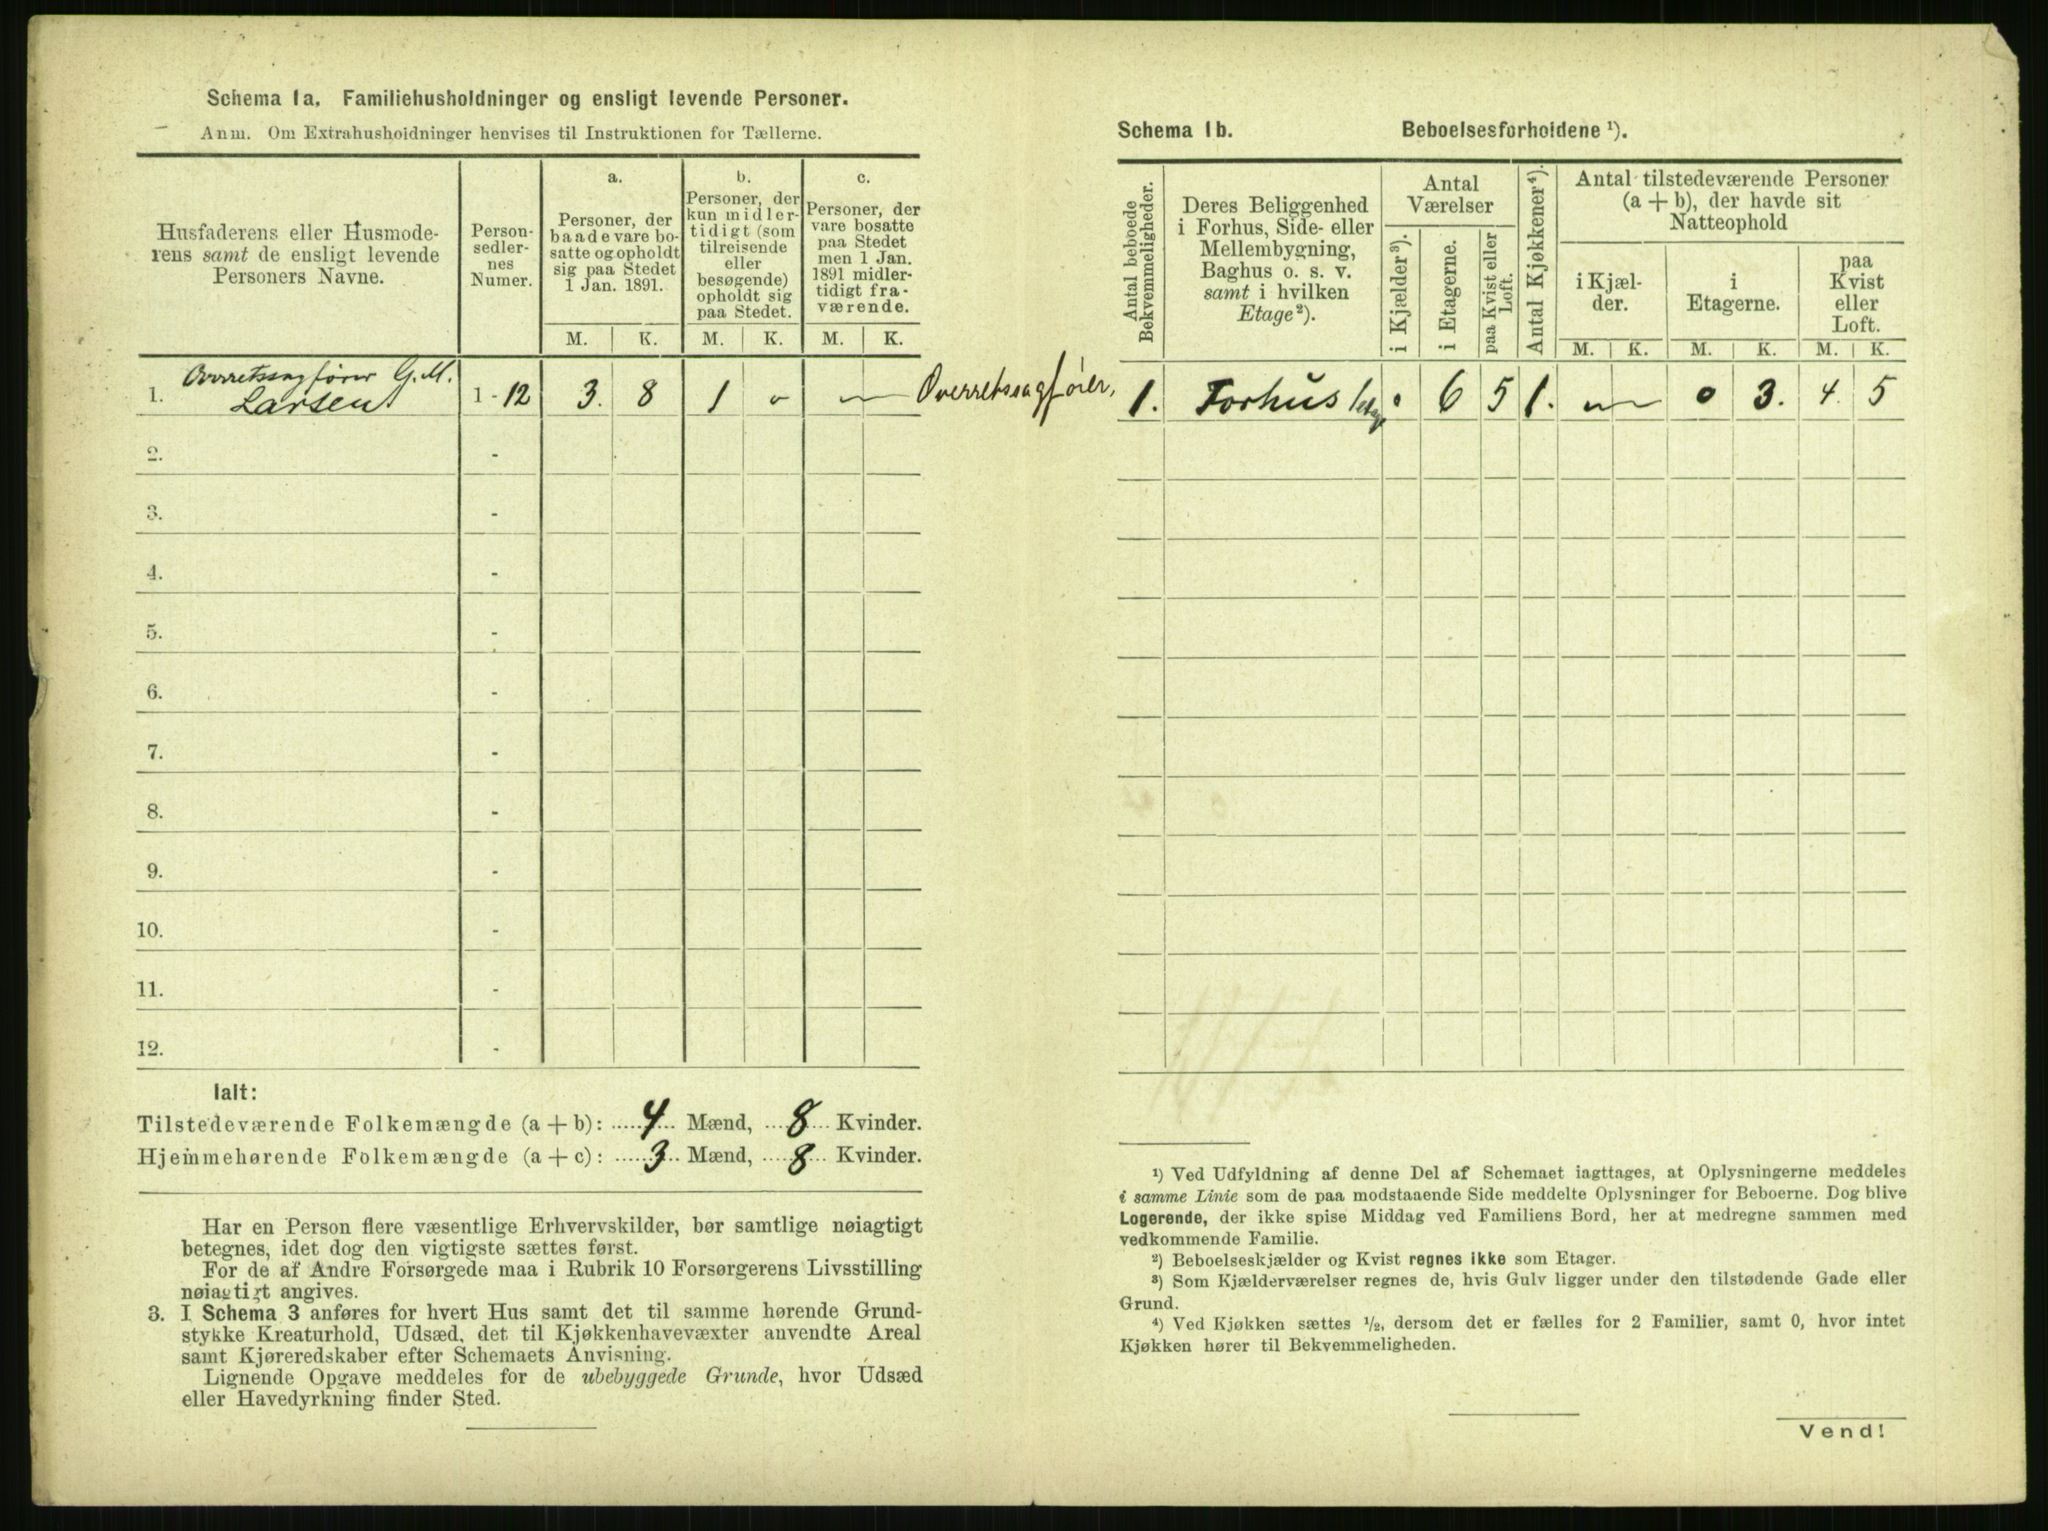 Schema 1a. Familiehusholdninger og ensligt levende Personer.
Anm. Om Extrahusholdninger henvises til Instruktionen for Tællerne.
Husfaderens eller Husmode-
rens samt de ensligt levende
Personers Navne.
Person-
sedler-
nes
Numer.
a.
Personer, der
baade vare bo-
satte og opholdt
sig paa Stedet
1 Jan. 1891.
b.
Personer, der
kun midler-
tidigt (som
tilreisende
eller
besøgende)
opholdt sig
paa Stedet.
c.
Personer, der
vare bosatte
paa Stedet
men 1 Jan.
1891 midler-
tidigt fra-
værende.
M. K. M. K. M. K.
1. Overretssagfører G. M.
Larsen 1 - 12 3. 8 1 0 — Overretssagfører,
2. -
3. -
4. -
5. -
6. -
7. -
8. -
9. -
10. -
11. -
12. -
Ialt:
Tilstedeværende Folkemængde (a + b): 4 Mænd, 8 Kvinder.
Hjemmehørende Folkemængde (a + c): 3 Mænd, 8 Kvinder.
Har en Person flere væsentlige Erhvervskilder, bør samtlige nøiagtigt
betegnes, idet dog den vigtigste sættes først.
For de af Andre Forsørgede maa i Rubrik 10 Forsørgerens Livsstilling
nøiagtigt angives.
3. I Schema 3 anføres for hvert Hus samt det til samme hørende Grund-
stykke Kreaturhold, Udsæd, det til Kjøkkenhavevæxter anvendte Areal
samt Kjøreredskaber efter Schemaets Anvisning.
Lignende Opgave meddeles for de ubebyggede Grunde, hvor Udsæd
eller Havedyrkning finder Sted.
Schema 1b. Beboelsesforholdene ¹).
Antal beboede
Bekvemmeligheder.
Deres Beliggenhed
i Forhus, Side- eller
Mellembygning,
Baghus o. s. v.
samt i hvilken
Etage²).
Antal
Værelser
i Kjælder³).
i Etagerne.
paa Kvist eller
Loft.
Antal Kjøkkener⁴).
Antal tilstedeværende Personer
(a + b), der havde sit
Natteophold
i Kjæl-
der.
i
Etagerne.
paa
Kvist
eller
Loft.
M. K. M. K. M. K.
1. Forhus 1 etage 0 6 5 1. — 0 3. 4. 5
¹) Ved Udfyldning af denne Del af Schemaet iagttages, at Oplysningerne meddeles
i samme Linie som de paa modstaaende Side meddelte Oplysninger for Beboerne. Dog blive
Logerende, der ikke spise Middag ved Familiens Bord, her at medregne sammen med
vedkommende Familie.
²) Beboelseskjælder og Kvist regnes ikke som Etager.
³) Som Kjælderværelser regnes de, hvis Gulv ligger under den tilstødende Gade eller
Grund.
⁴) Ved Kjøkken sættes ½, dersom det er fælles for 2 Familier, samt 0, hvor intet
Kjøkken hører til Bekvemmeligheden.
Vend!